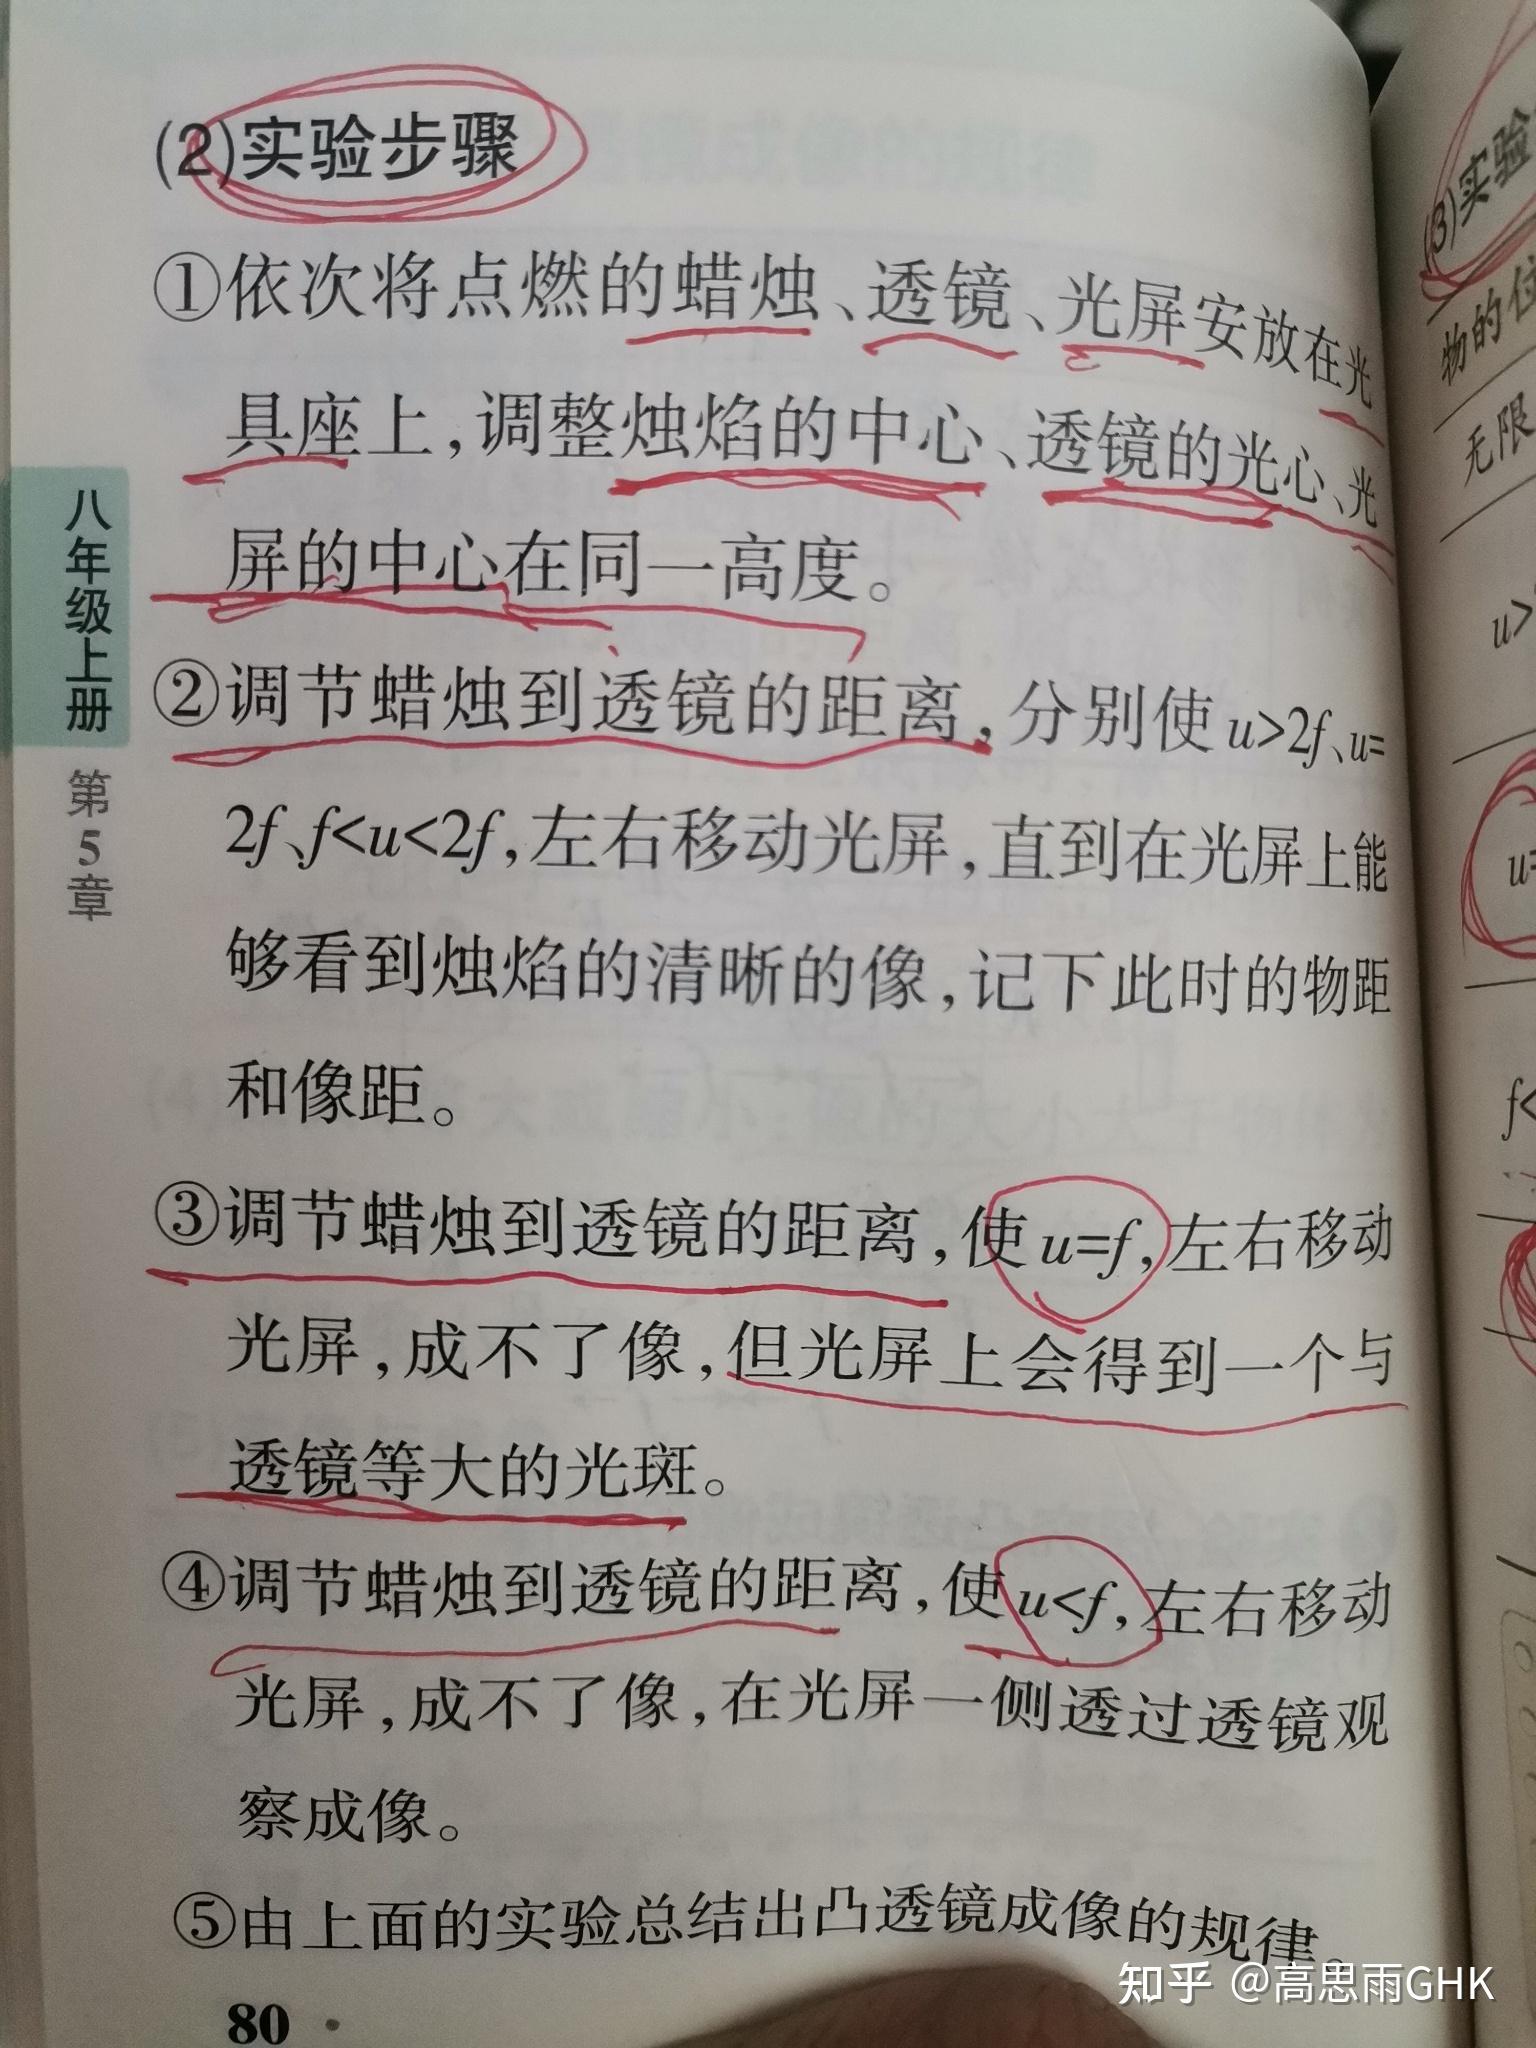 (2)实验步骤
①依次将点燃的蜡烛、透镜、光屏安放在光
具座上,调整烛焰的中心、透镜的光心、光
屏的中心在同一高度。
②调节蜡烛到透镜的距离,分别使u>2f、u=
2f、f<u<2f,左右移动光屏,直到在光屏上能
够看到烛焰的清晰的像,记下此时的物距
和像距。
③调节蜡烛到透镜的距离,使u=f,左右移动
光屏,成不了像,但光屏上会得到一个与
透镜等大的光斑。
④调节蜡烛到透镜的距离,使u<f,左右移动
光屏,成不了像,在光屏一侧透过透镜观
察成像。
⑤由上面的实验总结出凸透镜成像的规律。
80
八年级上册
第5章
(3)实验
物的位
无限
u>
u=
f<
知乎 @高思雨GHK